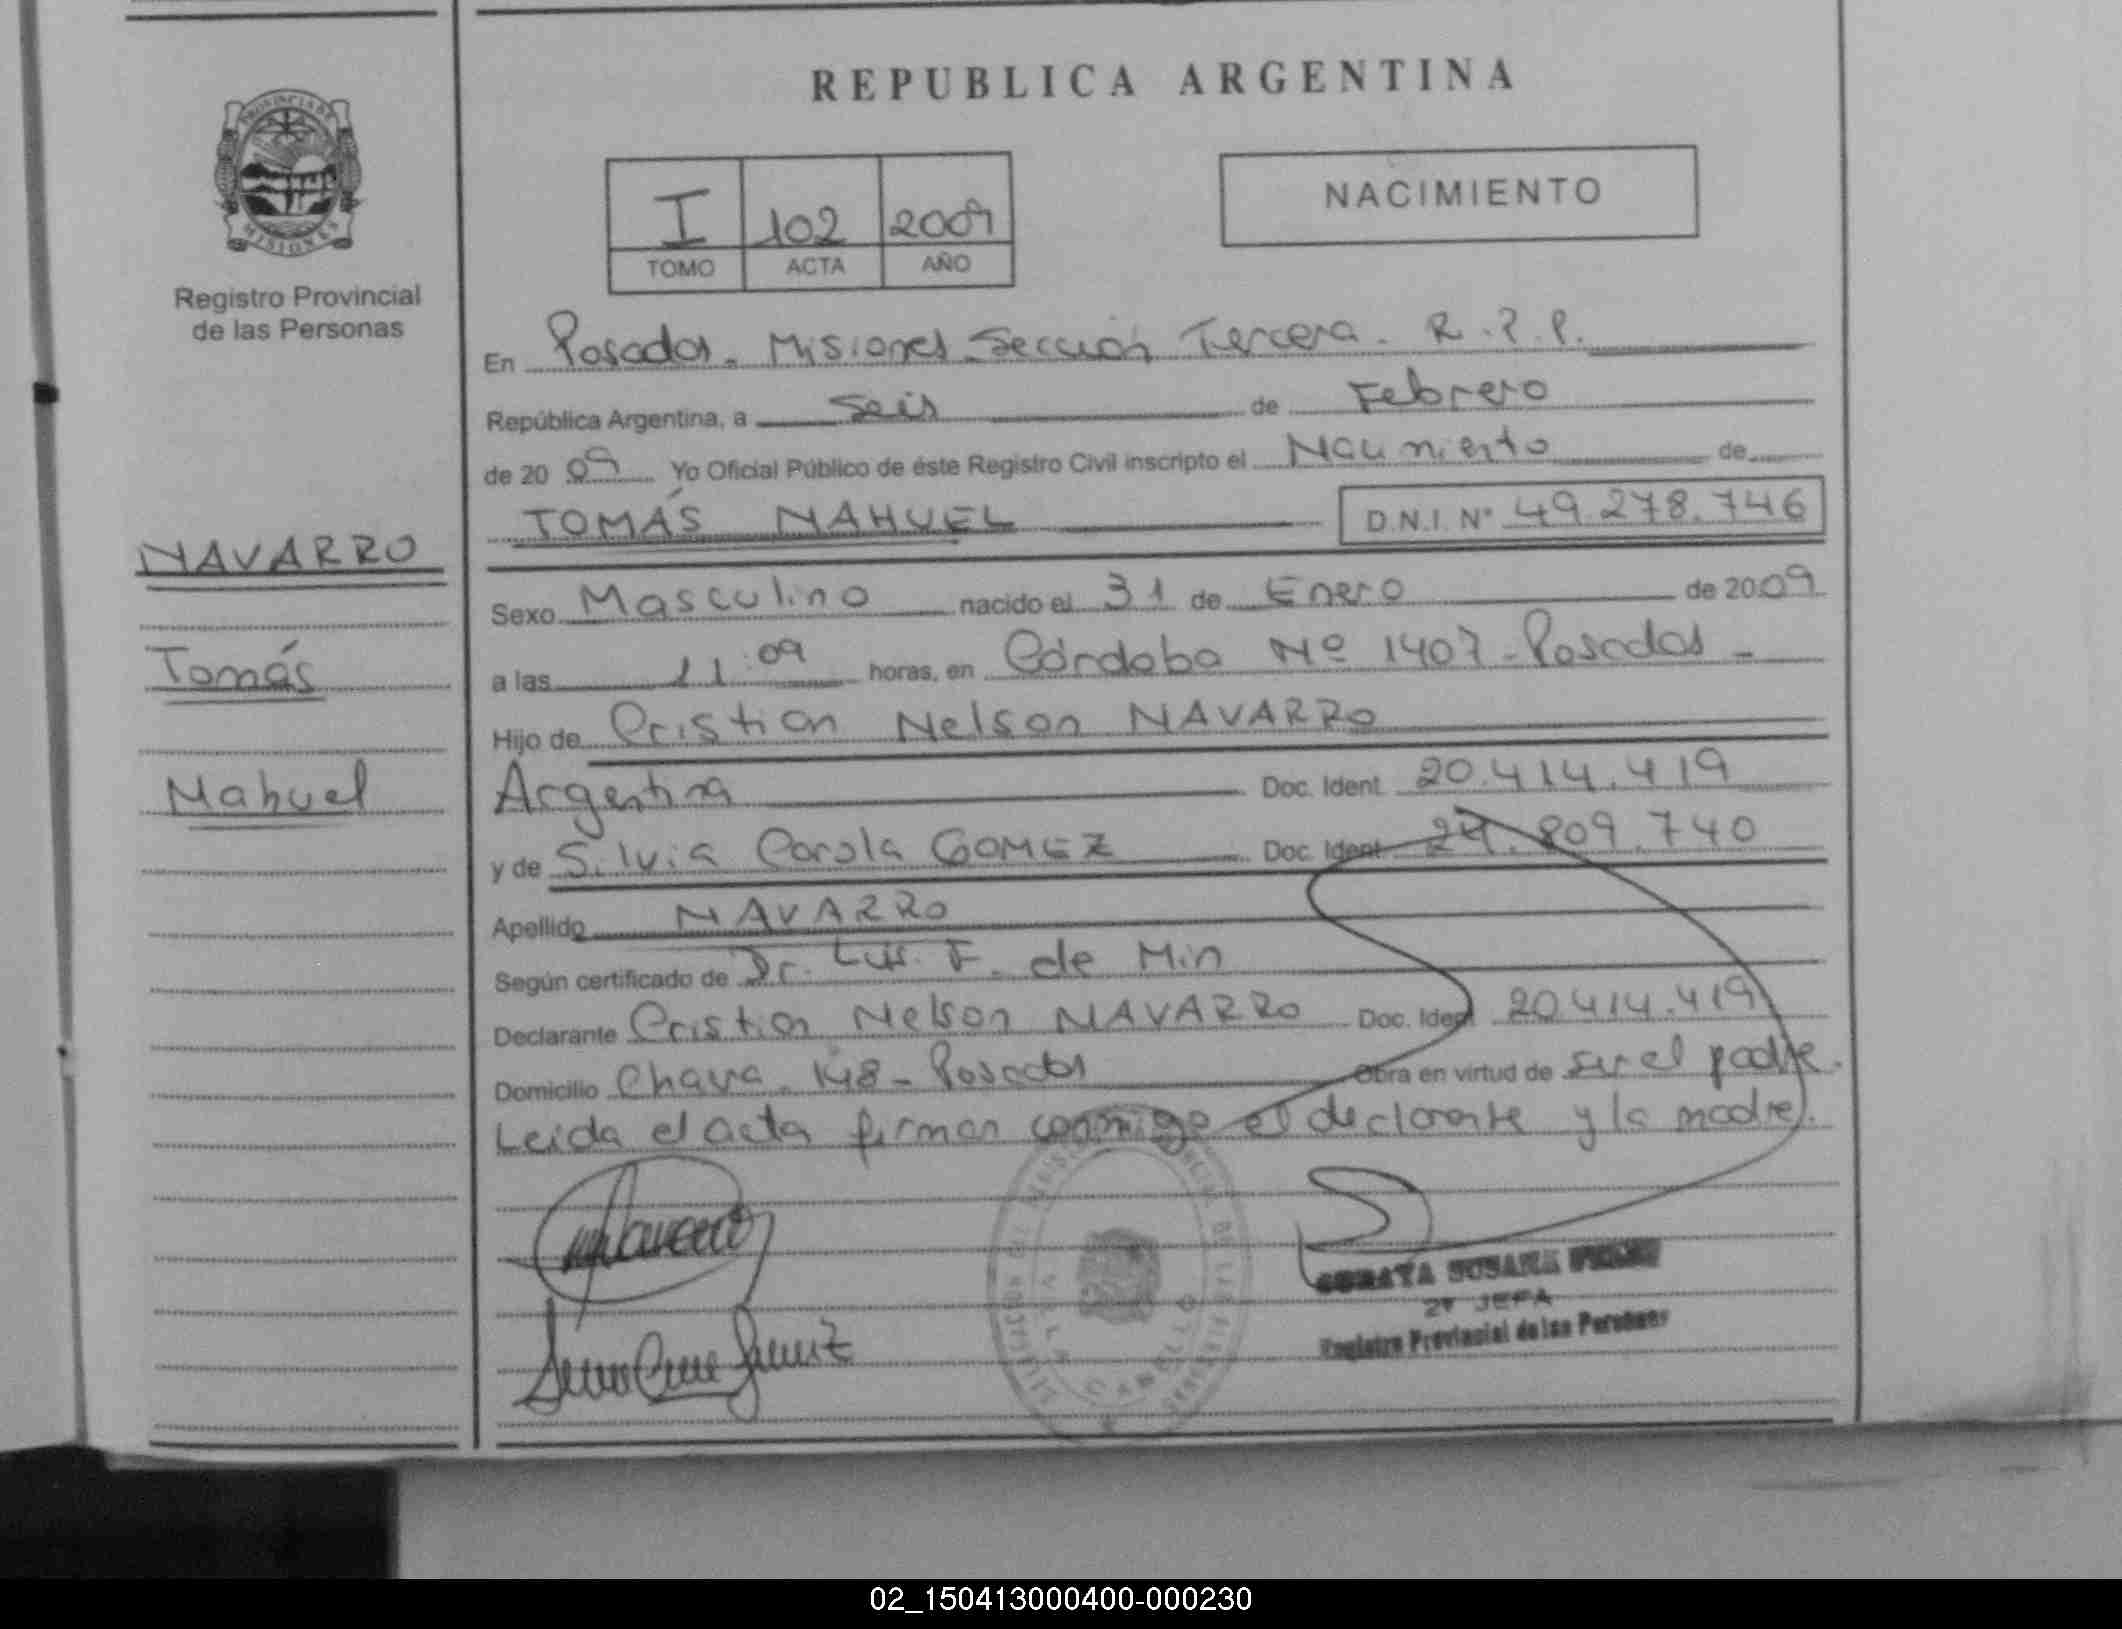 REPUBLICA ARGENTINA
PROVINCIA DE
MISIONES
Registro Provincial
de las Personas
I 102 2009
TOMO ACTA AÑO
NACIMIENTO
En Posadas - Misiones - Sección Tercera. R.P.P.
República Argentina, a Seis de Febrero
de 2009 Yo Oficial Público de éste Registro Civil inscripto el Nacimiento de
TOMÁS NAHUEL D.N.I. Nº 49.278.746
NAVARRO
Tomás
Nahuel
Sexo Masculino nacido el 31 de Enero de 2009
a las 11:09 horas, en Córdoba Nº 1407 - Posadas -
Hijo de Cristian Nelson NAVARRO
Argentina Doc. Ident 20.414.419
y de Silvia Carola GOMEZ Doc. Ident 24.809.740
Apellido NAVARRO
Según certificado de Dr. Luis F. de Min
Declarante Cristian Nelson NAVARRO Doc. Ident 20.414.419
Domicilio 148 - Posadas Obra en virtud de ser el padre.
Leida el acta firman conmigo el declarante y la madre.
SUSANA
2º JEFA
Registro Provincial de las Personas
02_150413000400-000230